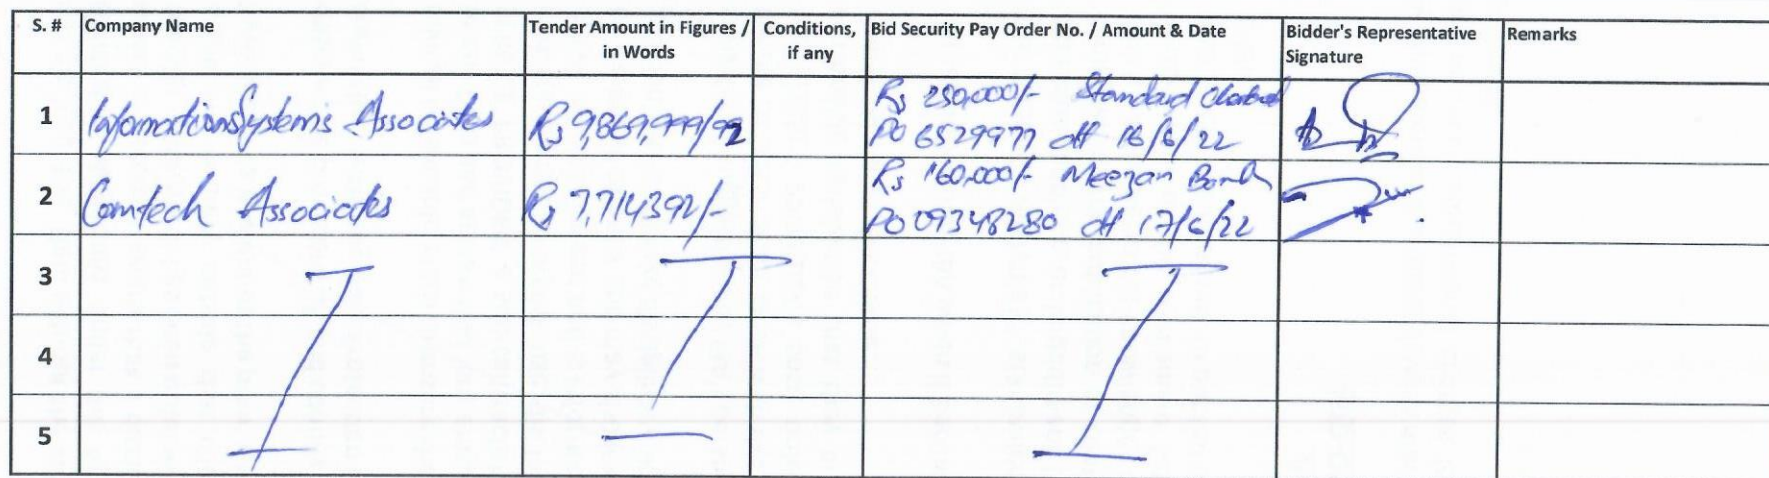 S. # Company Name Tender Amount in Figures / in Words Conditions, if any Bid Security Pay Order No. / Amount & Date Bidder's Representative Signature Remarks
1 Information Systems Associates Rs 9,869,999/92 Rs 250,000/- Standard Chartered
PO 6529977 dt 16/6/22
2 Comtech Associates Rs 7,714392/- Rs 160,000/- Meezan Bank
PO 09348280 dt 17/6/22
3
4
5